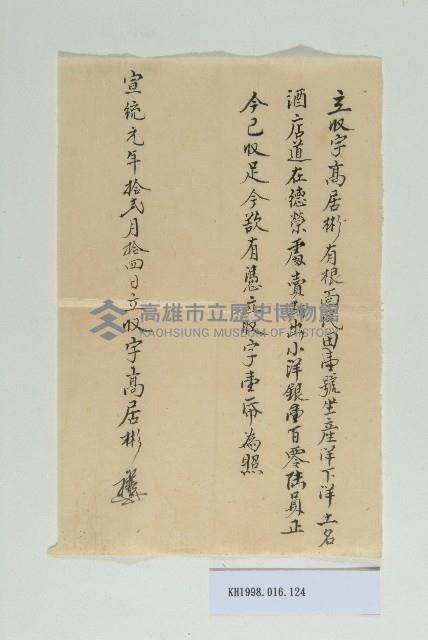 立収字高居彬有根面民田壹號坐產洋下洋土名
酒店道在德榮處賣出小洋銀壹百零陸員正
今已収足今欲有憑立収字壹帋為照
宣統元年拾弍月拾四日立収字高居彬
高雄市立歷史博物館
KAOHSIUNG MUSEUM OF HISTORY
KH1998.016.124